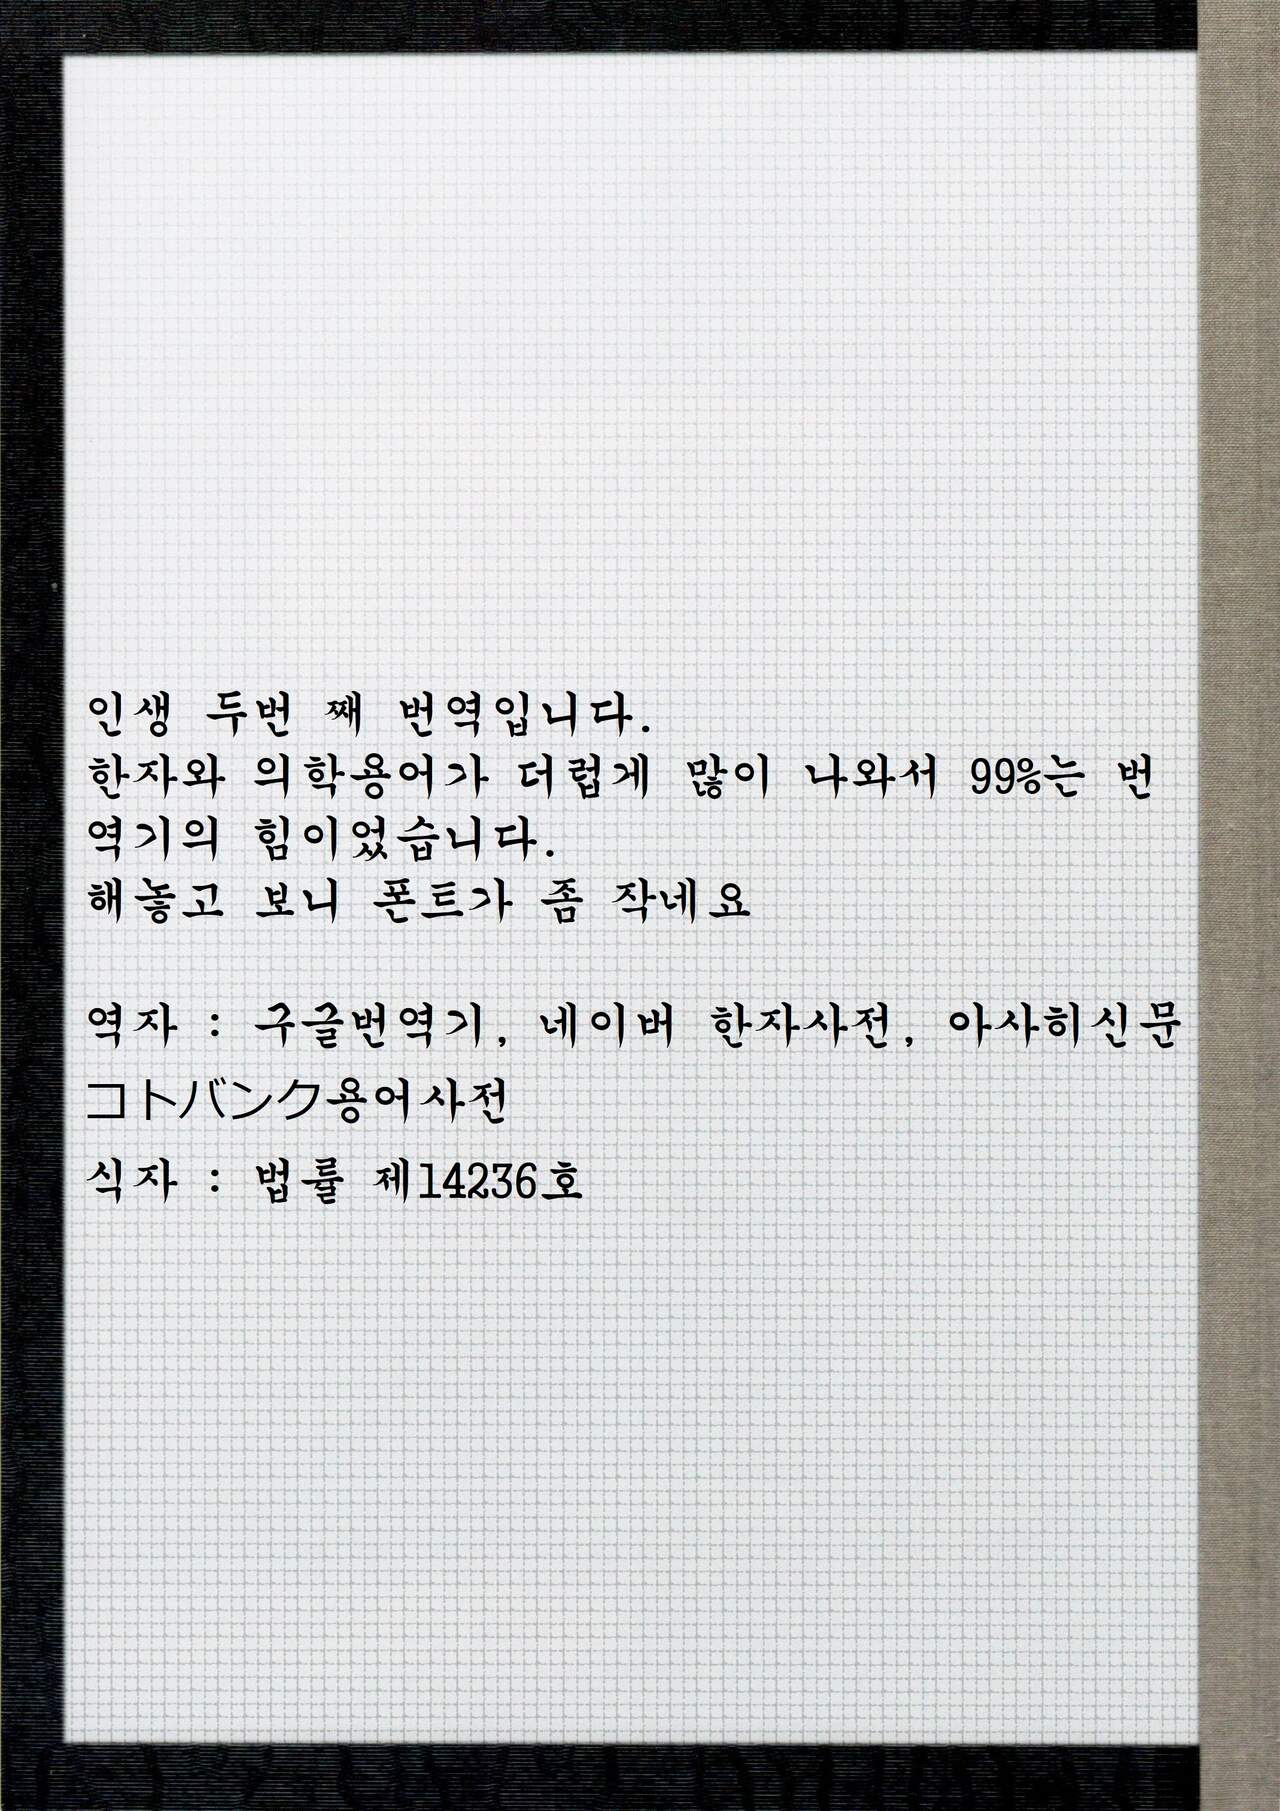 인생 두번 째 번역입니다.
한자와 의학용어가 더럽게 많이 나와서 99%는 번
역기의 힘이었습니다.
해놓고 보니 폰트가 좀 작네요
역자 : 구글번역기, 네이버 한자사전, 아사히신문
コトバンク용어사전
식자 : 법률 제14236호